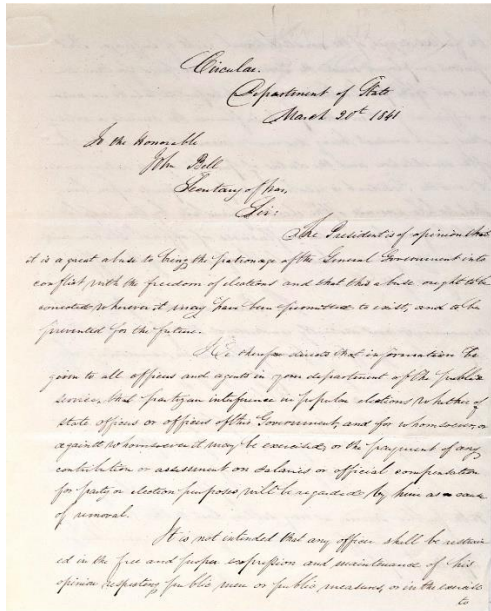 Circular.
Department of State
March 20t 1841
To the Honorable
John Bell
Secretary of War,
Sir:
The President is of opinion that
it is a great abuse to bring the patronage of the General Government into
conflict with the freedom of elections and that this abuse ought to be
corrected wherever it may have been permitted to exist, and to be
prevented for the future.
He therefore directs that information be
given to all officers and agents in your department of the public
service, that partizan interference in popular elections whether of
state officers or officers of this Government, and for whomsoever, or
against whomsoever it may be exercised, or the payment of any
contribution or assessment on salaries or official compensation
for party or election purposes will be regarded by him as a cause
of removal.
It is not intended that any officer shall be restrain
ed in the free and proper expression and maintenance of his
opinion respecting public men or public measures, or in the exercise
to